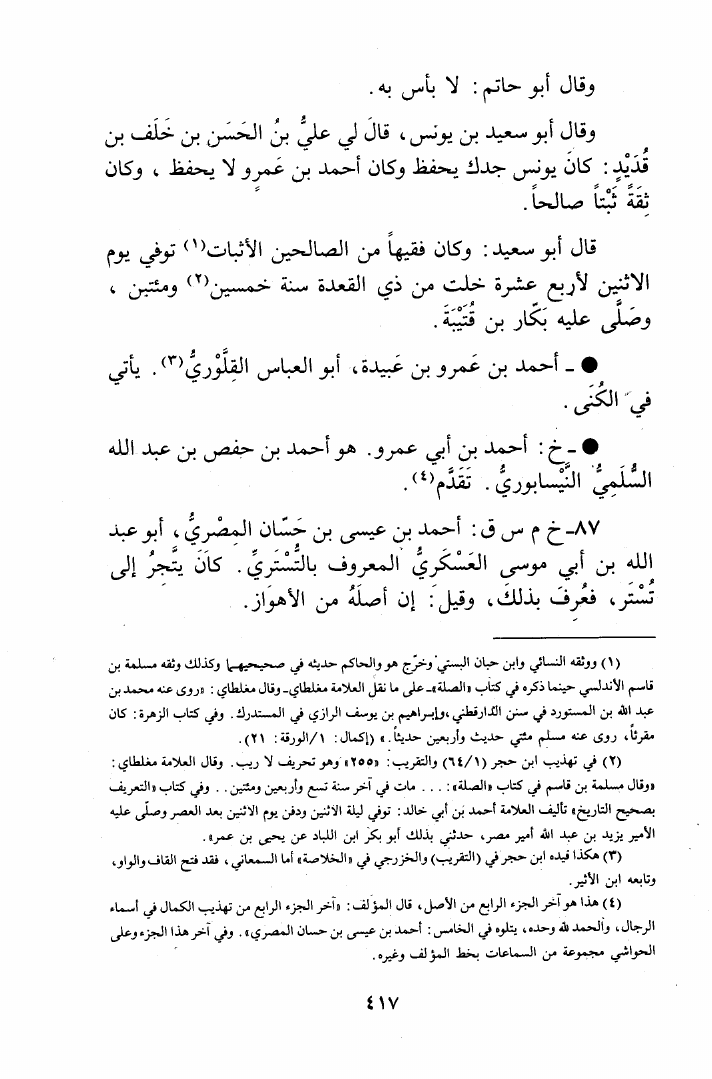 وقال أبو حاتم : لا بأس به .
وقال أبو سعيد بن يونس ، قالَ لي عليُّ بنُ الحَسَن بن خَلَف بن
قُدَيْدٍ : كانَ يونس جدك يحفظ وكان أحمد بن عَمرٍو لا يحفظ ، وكان
ثِقَةً ثَبْتاً صالحاً .
قال أبو سعيد : وكان فقيهاً من الصالحين الأثبات(١) توفي يوم
الاثنين لأربع عشرة خلت من ذي القعدة سنة خمسين(٢) ومئتين ،
وصَلَّى عليه بَكّار بن قُتَيْبَةَ .
● ـ أحمد بن عَمرو بن عَبيدة، أبو العباس القِلَّوْريُّ(٣) . يأتي
في الكُنَى .
● ـ خ : أحمد بن أبي عمرو . هو أحمد بن حفص بن عبد الله
السُّلَمِيُّ النَّيْسابوريُّ . تَقَدَّم(٤) .
٨٧ـ خ م س ق : أحمد بن عيسى بن حَسّان المِصْريُّ، أبو عبد
الله بن أبي موسى العَسْكَريُّ المعروف بالتُّسْتَريِّ . كانَ يتَّجرُ إلى
تُسْتَر، فعُرِفَ بذلكَ، وقيل : إن أصلَهُ من الأهوَاز .
(١) ووثقه النسائي وابن حبان البستي وخرّج هو والحاكم حديثه في صحيحيهما وكذلك وثقه مسلمة بن
قاسم الأندلسي حينما ذكره في كتاب «الصلة» ـ على ما نقل العلامة مغلطاي ـ وقال مغلطاي : «روى عنه محمد بن
عبد الله بن المستورد في سنن الدارقطني ، وإبراهيم بن يوسف الرازي في المستدرك . وفي كتاب الزهرة : كان
مقرئاً، روى عنه مسلم مئتي حديث وأربعين حديثاً . » (إكمال : ١/الورقة : ٢١) .
(٢) في تهذيب ابن حجر (١/٦٤) والتقريب : «٢٥٥» وهو تحريف لا ريب . وقال العلامة مغلطاي :
«وقال مسلمة بن قاسم في كتاب «الصلة» : . . . مات في آخر سنة تسع وأربعين ومئتين . . وفي كتاب «التعريف
بصحيح التاريخ» تأليف العلامة أحمد بن أبي خالد : توفي ليلة الاثنين ودفن يوم الاثنين بعد العصر وصلّى عليه
الأمير يزيد بن عبد الله أمير مصر، حدثني بذلك أبو بكر ابن اللباد عن يحيى بن عمر» .
(٣) هكذا قيده ابن حجر في (التقريب) والخزرجي في «الخلاصة» أما السمعاني ، فقد فتح القاف والواو،
وتابعه ابن الأثير .
(٤) هذا هو آخر الجزء الرابع من الأصل، قال المؤلف : «آخر الجزء الرابع من تهذيب الكمال في أسماء
الرجال، والحمد لله وحده، يتلوه في الخامس : أحمد بن عيسى بن حسان المصري» . وفي آخر هذا الجزء وعلى
الحواشي مجموعة من السماعات بخط المؤلف وغيره .
٤١٧